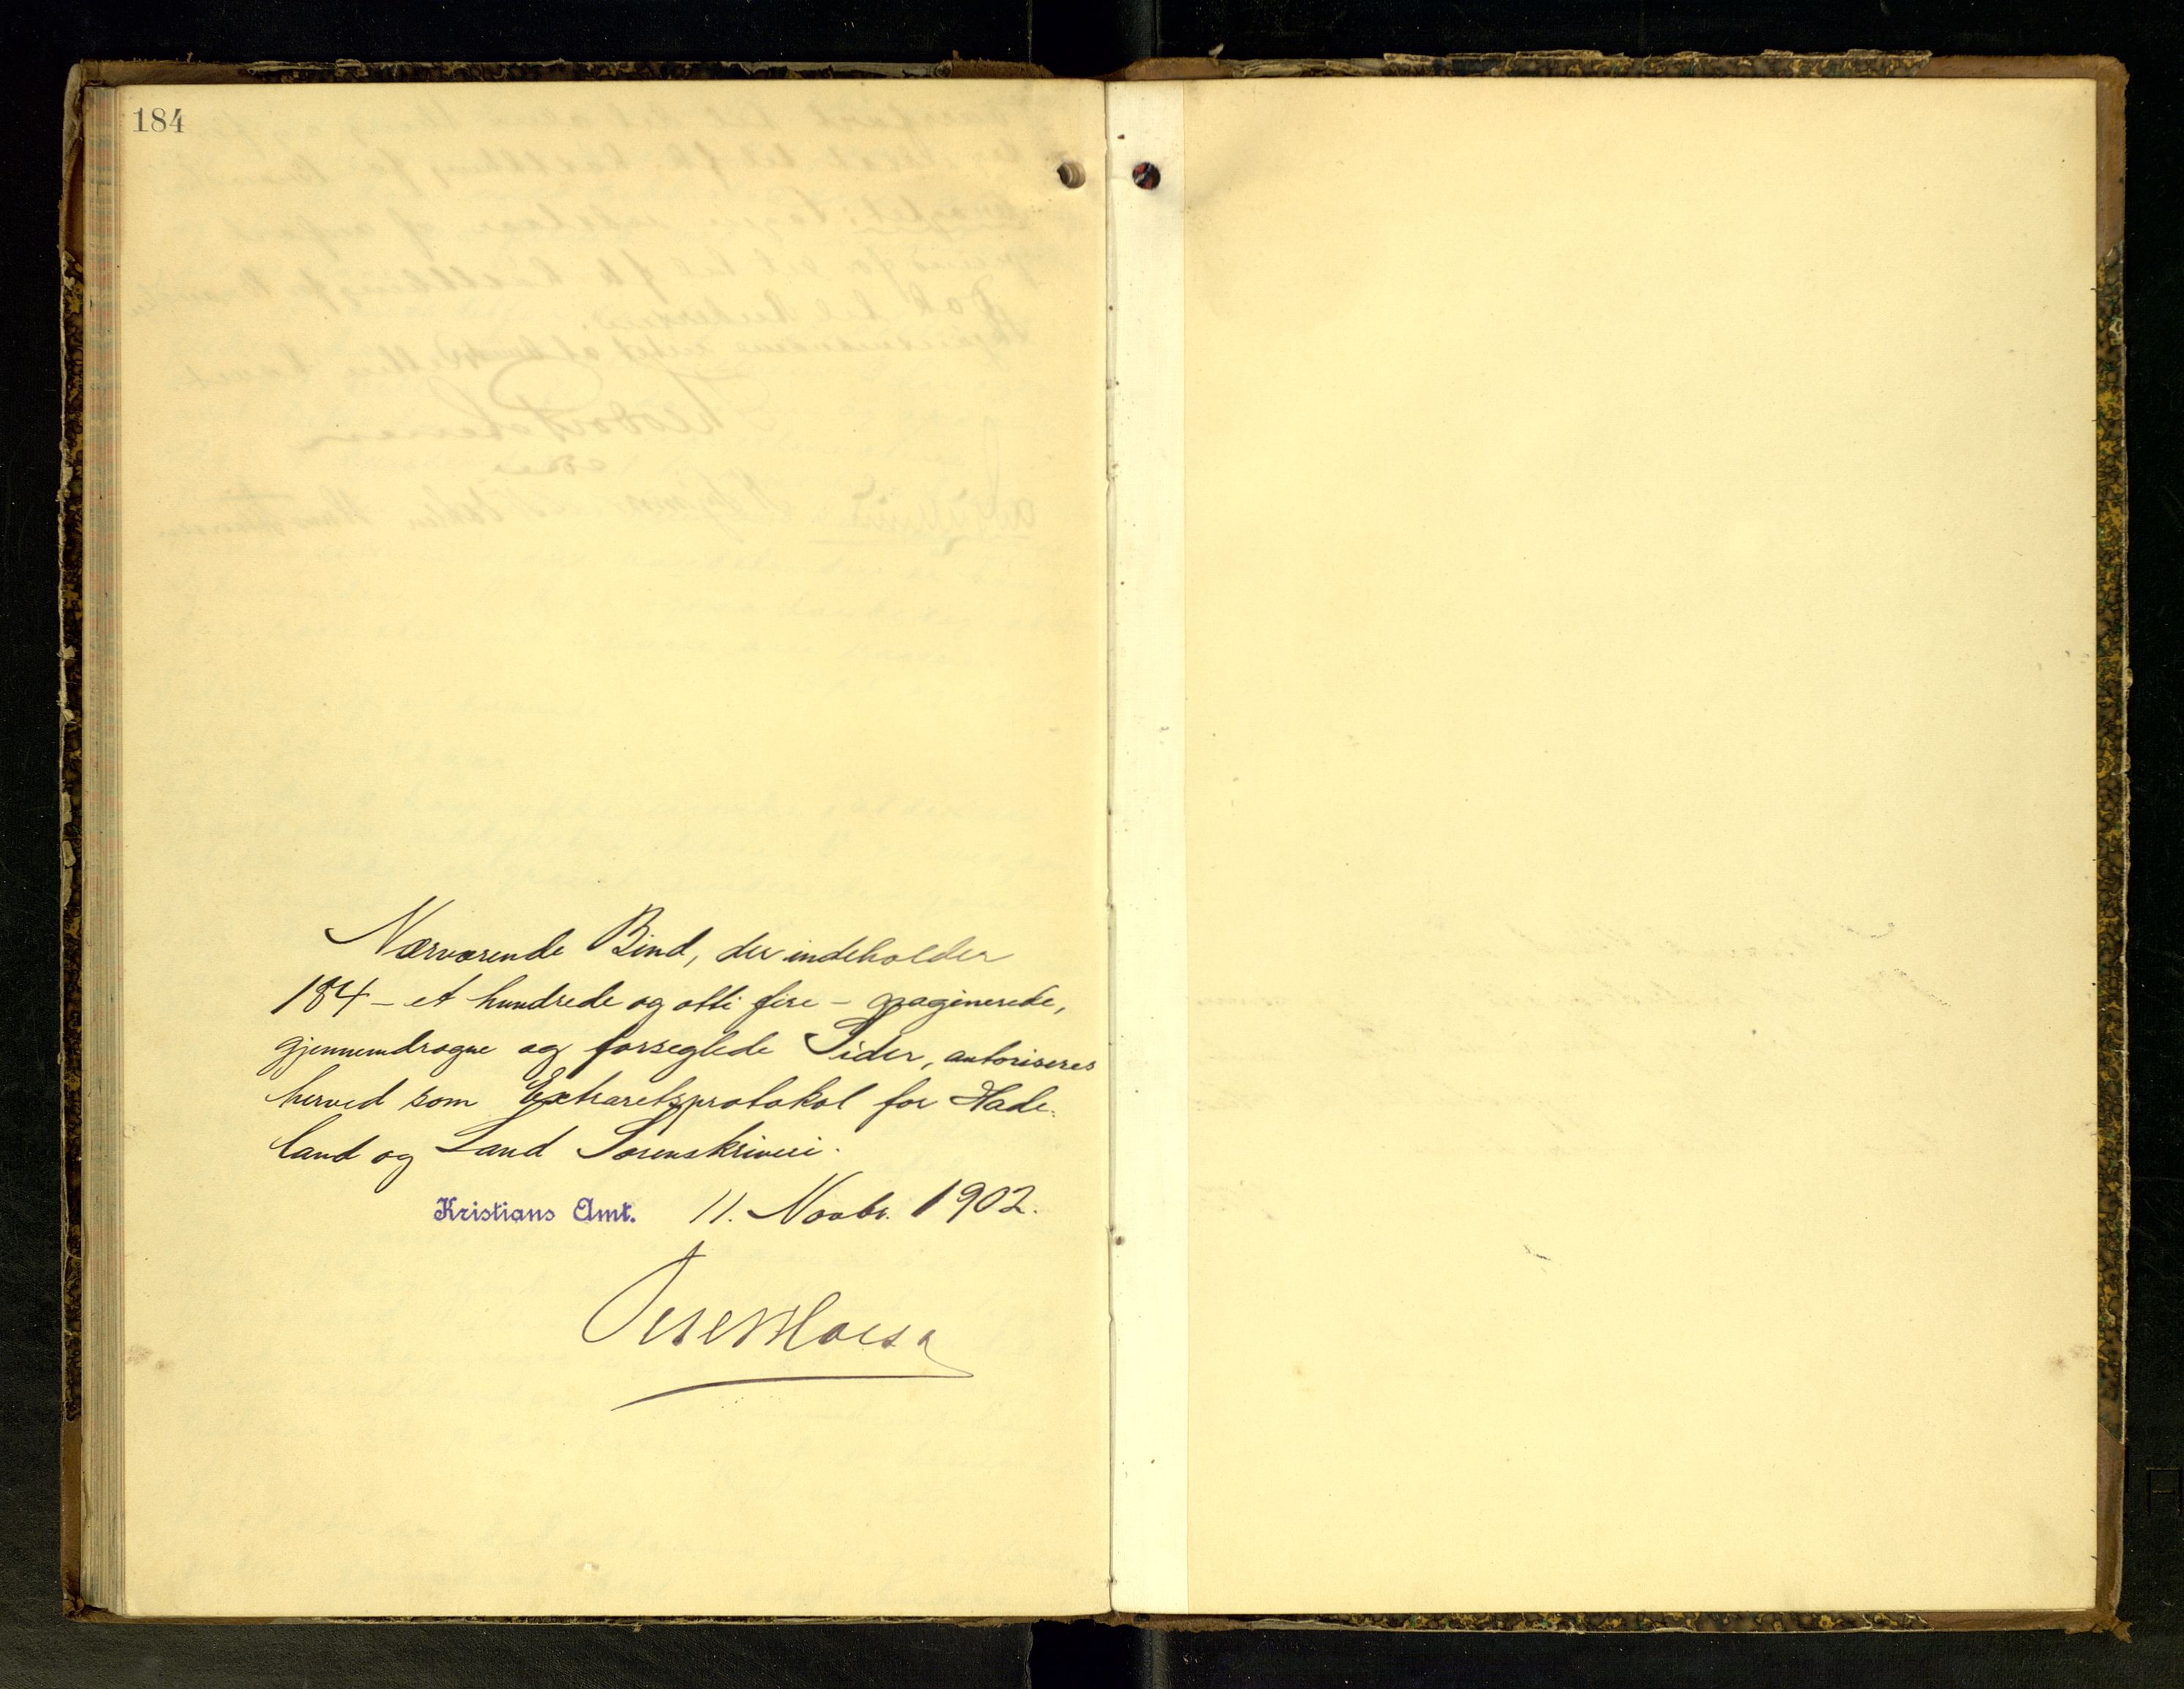 184
Nærværende Bind, der indeholder
184 - et hundrede og otti fire - paginerede,
gjennemdragne og forseglede Sider, autoriseres
herved som Extraretsprotokol for Hade-
land og Land Sorenskriveri.
Kristians Amt. 11. Novbr. 1902.